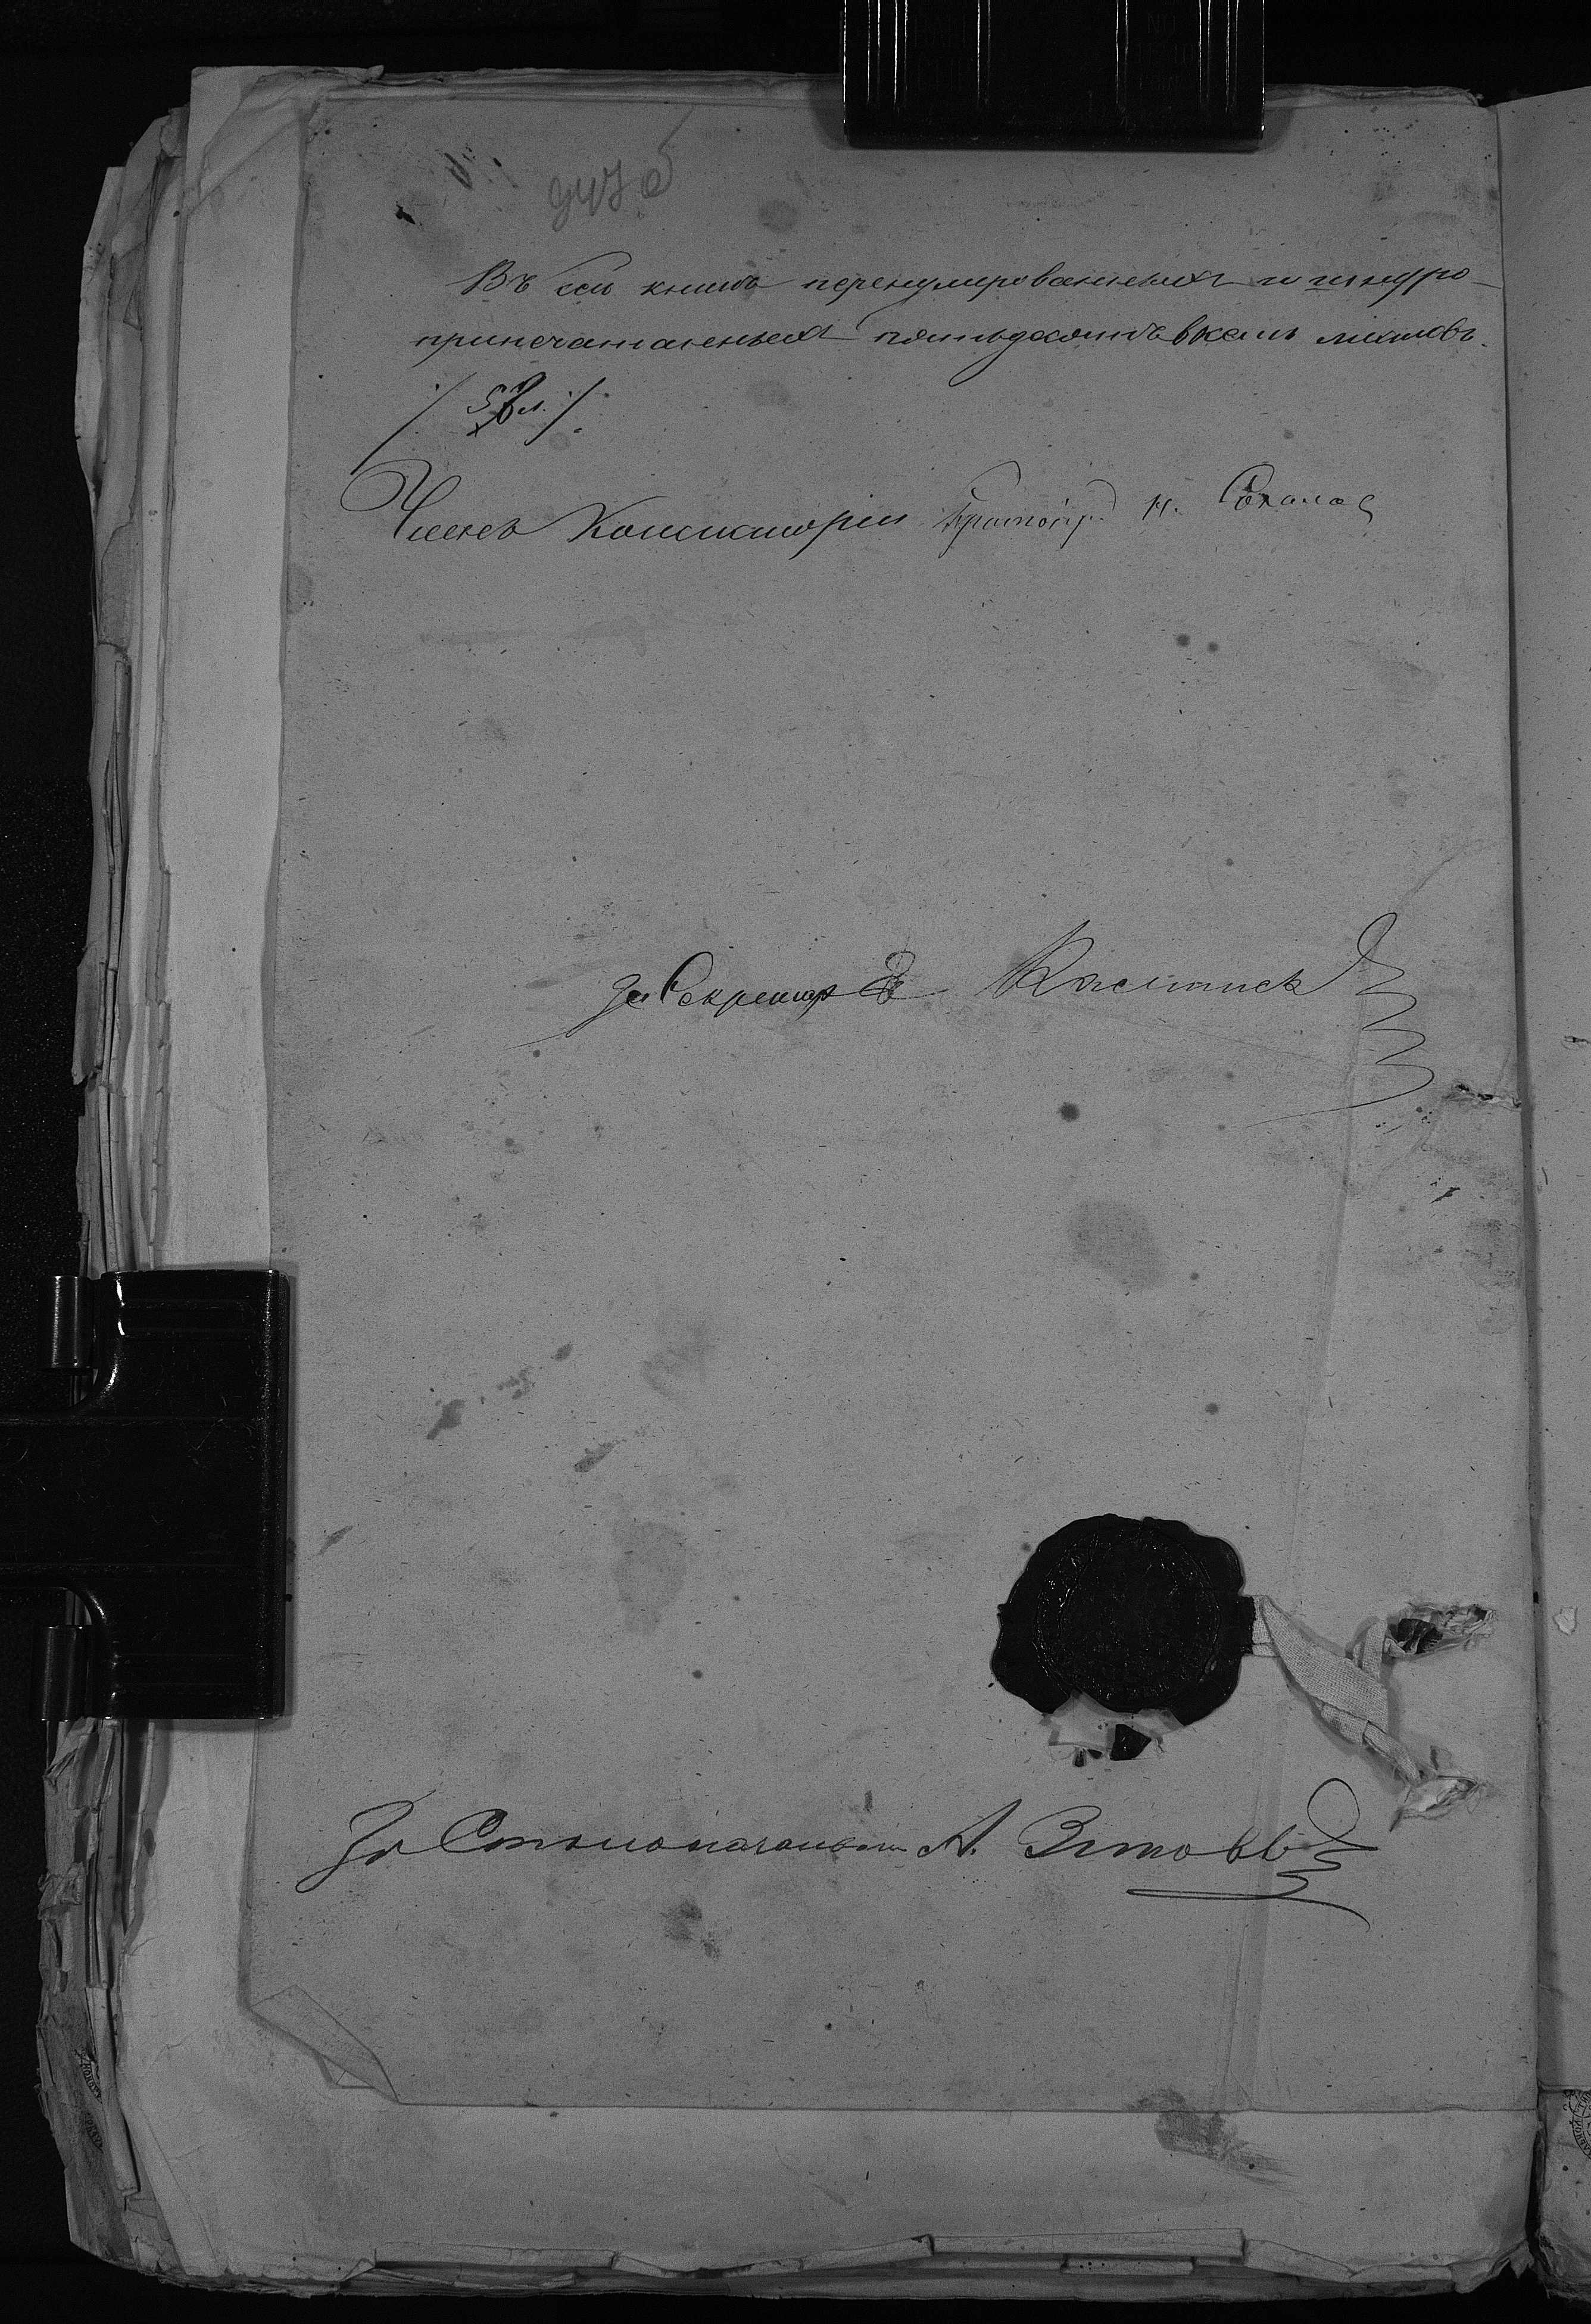 947 об
Въ сей книгѣ перенумерованныхъ и шнуро-
припечатанныхъ пятьдесятъ листовъ.
Членъ Консисторіи Протоіер. Н. Соколов
За Секретар
За Столоначальника А. Зитовъ